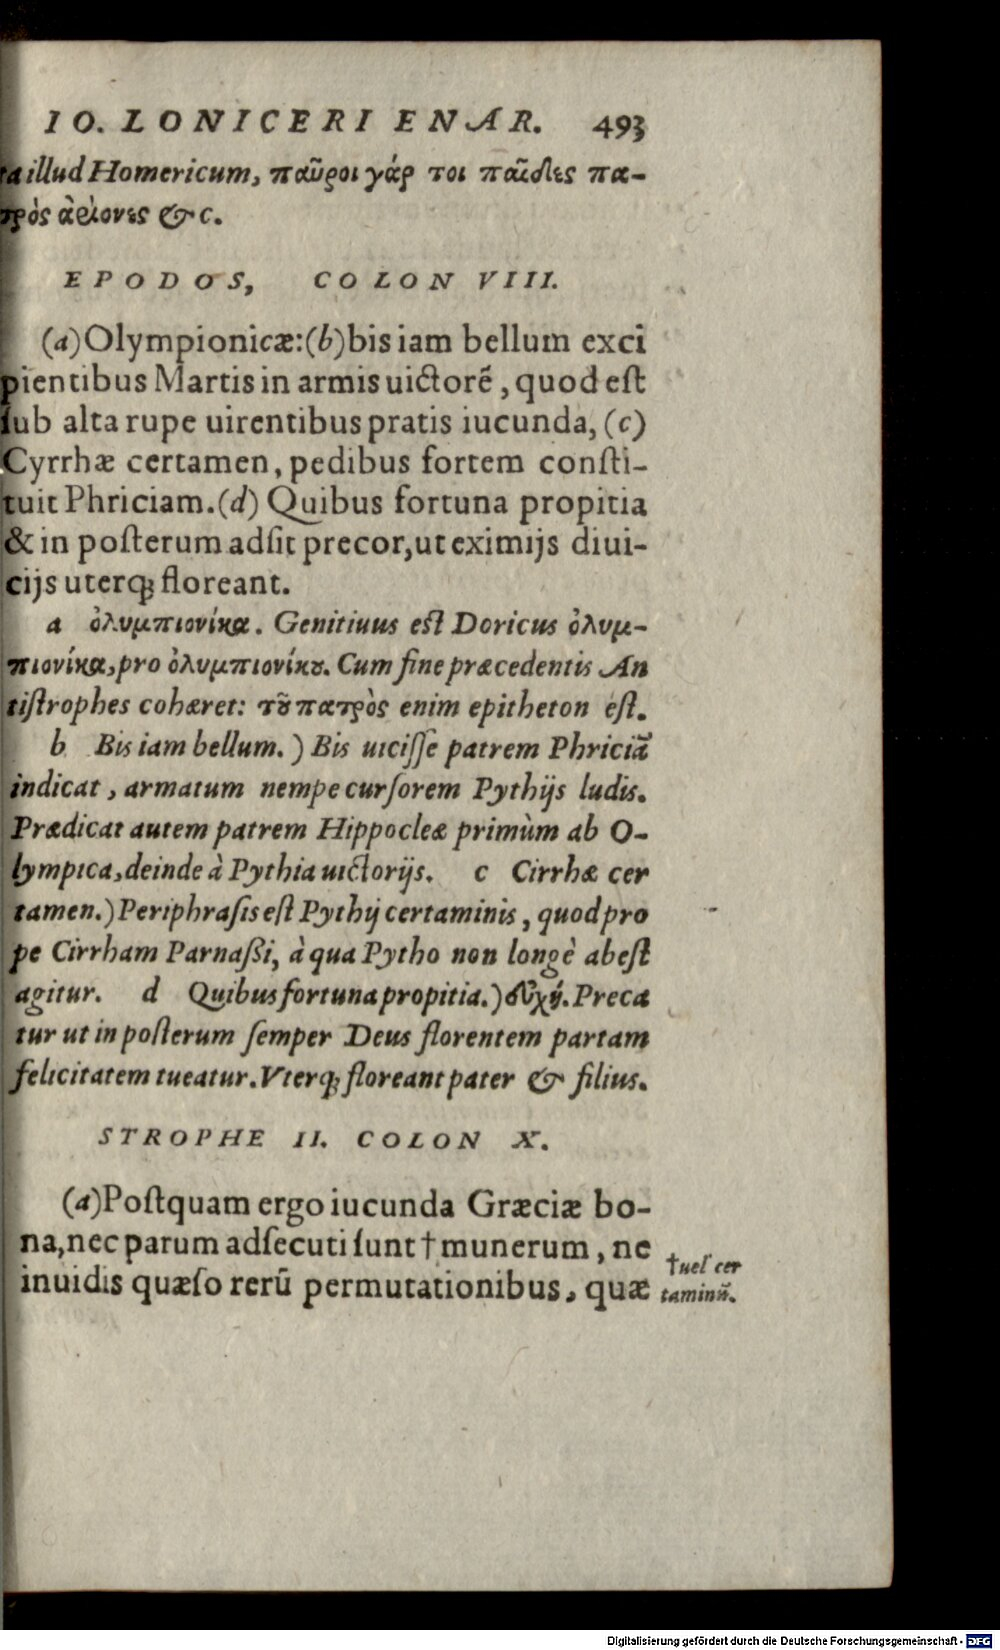 IO. LONICERI ENAR. 493
ta illud Homericum, παῦροι γάρ τοι παῖδες πα-
τρὸς ἀρείονες & c.
EPODOS, COLON VIII.
(a) Olympionicæ: (b) bis iam bellum exci
pientibus Martis in armis uictorē, quod eſt
ſub alta rupe uirentibus pratis iucunda, (c)
Cyrrhæ certamen, pedibus fortem conſti-
tuit Phriciam. (d) Quibus fortuna propitia
& in poſterum adſit precor, ut eximijs diui-
cijs uterq; floreant.
a ὀλυμπιονίκα. Genitiuus eſt Doricus ὀλυμ-
πιονίκα, pro ὀλυμπιονίκȣ. Cum fine præcedentis An
tiſtrophes cohæret: τȣ͂ πατρὸς enim epitheton eſt.
b Bis iam bellum.) Bis uiciſſe patrem Phriciā
indicat, armatum nempe curſorem Pythijs ludis.
Prædicat autem patrem Hippocleæ primùm ab O-
lympica, deinde à Pythia uictorijs. c Cirrhæ cer
tamen.) Periphraſis eſt Pythij certaminis, quod pro
pe Cirrham Parnaßi, à qua Pytho non longè abeſt
agitur. d Quibus fortuna propitia.) εὐχή. Preca
tur ut in poſterum ſemper Deus florentem partam
felicitatem tueatur. Vterq; floreant pater & filius.
STROPHE II. COLON X.
(a) Poſtquam ergo iucunda Græciæ bo-
na, nec parum adſecuti ſunt † munerum, ne
inuidis quæſo rerū permutationibus, quæ
† uel cer
taminū.
Digitalisierung gefördert durch die Deutsche Forschungsgemeinschaft - DFG